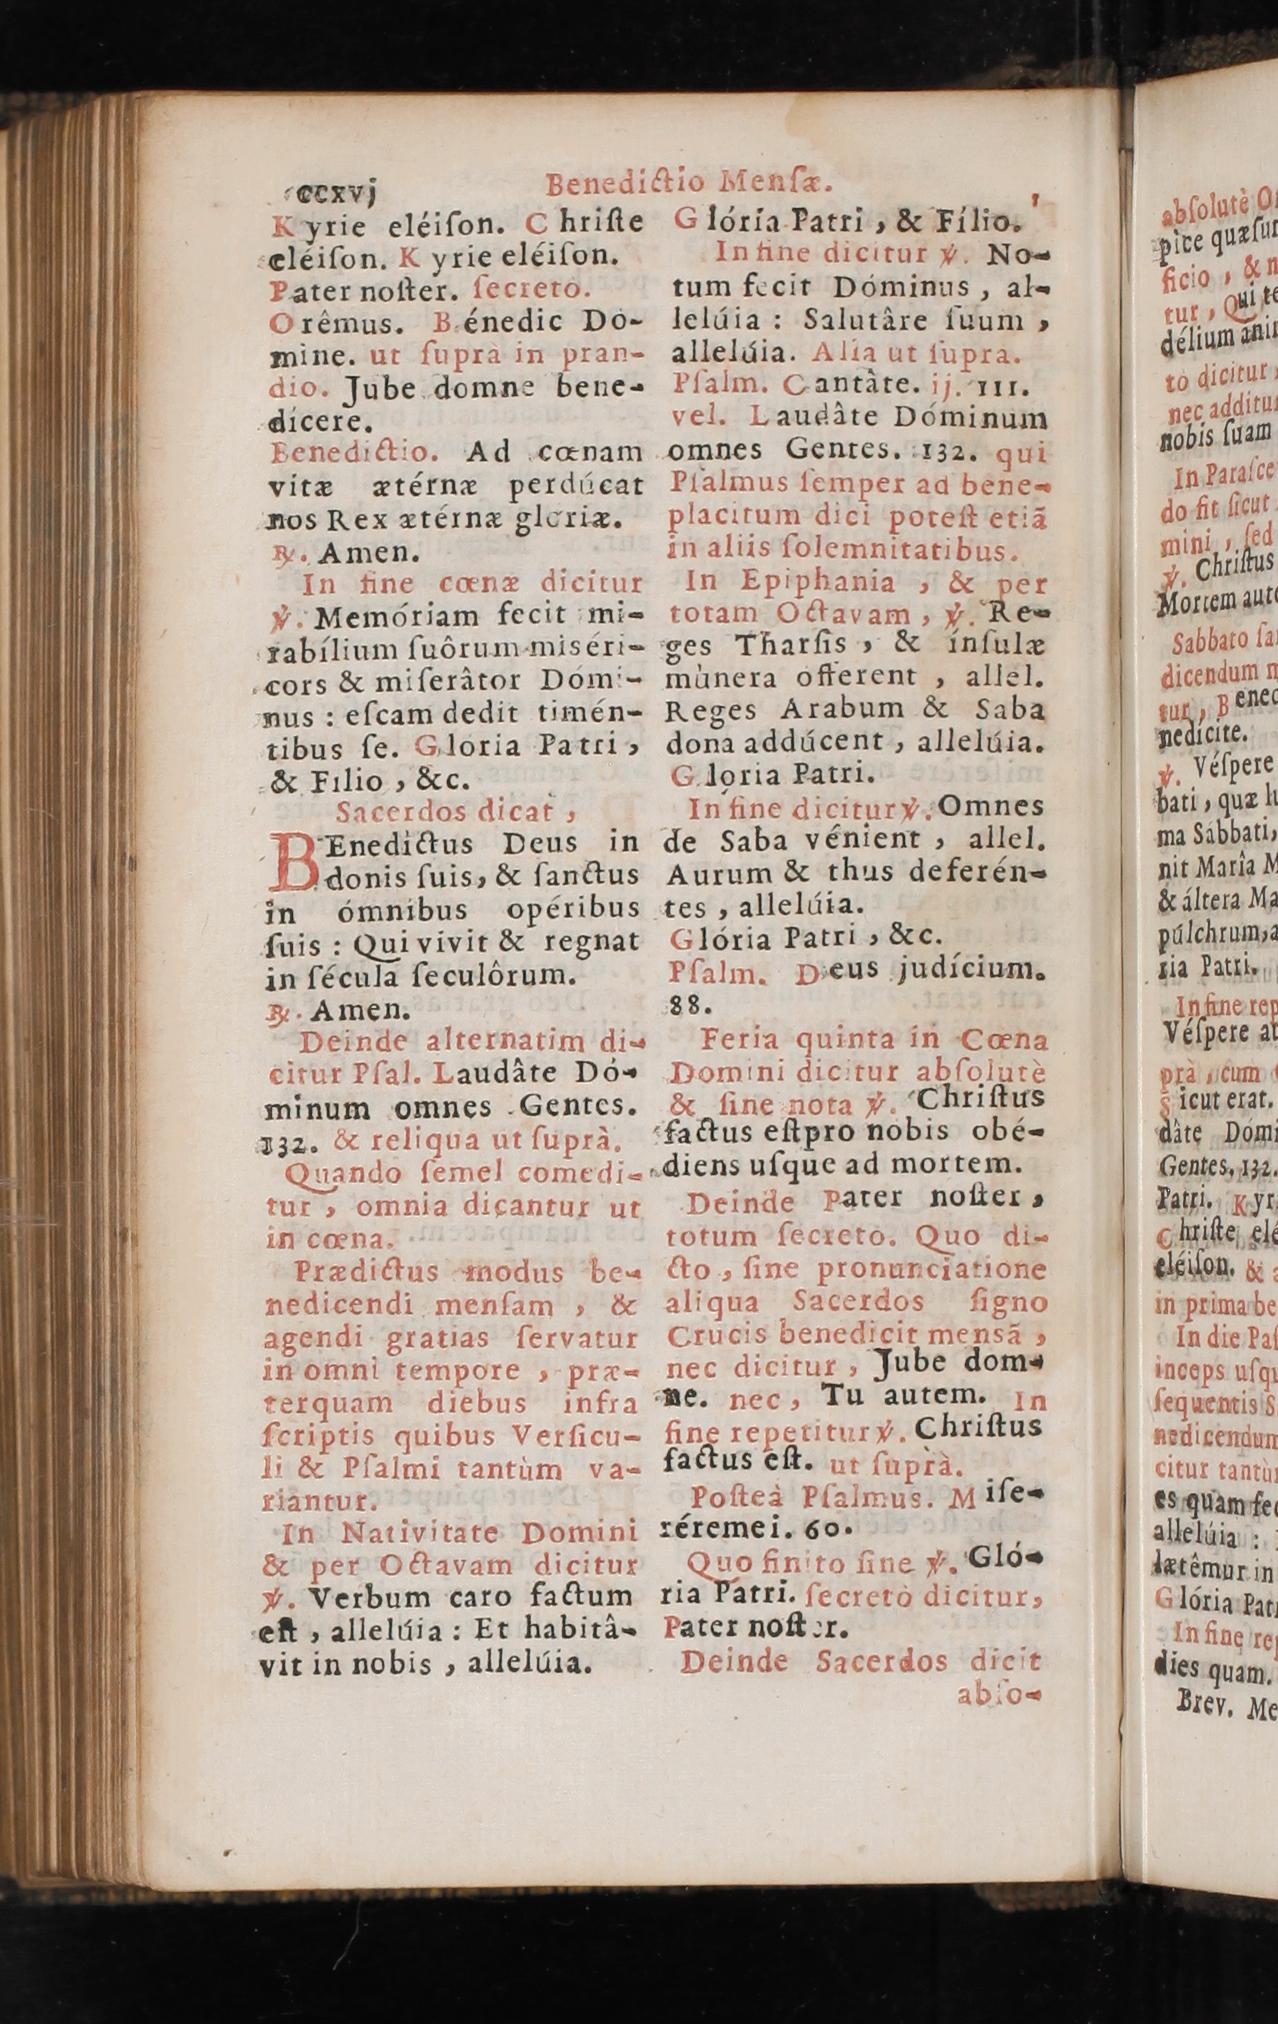 ccxvj
Benedictio Menſæ.
Kyrie eléiſon. Chriſte
eléiſon. Kyrie eléiſon.
Pater noſter. ſecretò.
Orêmus. Bénedic Do-
mine. ut ſuprà in pran-
dio. Jube domne bene-
dícere.
Benedictio. Ad cœnam
vitæ ætérnæ perdúcat
nos Rex ætérnæ gloriæ.
℟. Amen.
In fine cœnæ dicitur
℣. Memóriam fecit mi-
rabílium ſuôrum miséri-
cors & miſerâtor Dómi-
nus : eſcam dedit timén-
tibus ſe. Gloria Patri,
& Filio, &c.
Sacerdos dicat,
BEnedictus Deus in
donis ſuis, & ſanctus
in ómnibus opéribus
ſuis : Qui vivit & regnat
in ſécula ſeculôrum.
℟. Amen.
Deinde alternatim di-
citur Pſal. Laudâte Dó-
minum omnes Gentes.
132. & reliqua ut ſuprà.
Quando ſemel comedi-
tur, omnia dicantur ut
in cœna.
Prædictus modus be-
nedicendi menſam, &
agendi gratias ſervatur
in omni tempore, præ-
terquam diebus infra
ſcriptis quibus Verſicu-
li & Pſalmi tantùm va-
riantur.
In Nativitate Domini
& per Octavam dicitur
℣. Verbum caro factum
eſt, allelúia : Et habitâ-
vit in nobis, allelúia.
Glória Patri, & Fílio.
In fine dicitur ℣. No-
tum fecit Dóminus, al-
lelúia : Salutâre ſuum,
allelúia. Alia ut ſupra.
Pſalm. Cantâte. ij. 111.
vel. Laudâte Dóminum
omnes Gentes. 132. qui
Pſalmus ſemper ad bene-
placitum dici poteſt etiā
in aliis ſolemnitatibus.
In Epiphania, & per
totam Octavam, ℣. Re-
ges Tharſis, & ínſulæ
mùnera offerent, allel.
Reges Arabum & Saba
dona addúcent, allelúia.
Gloria Patri.
In fine dicitur ℣. Omnes
de Saba vénient, allel.
Aurum & thus deferén-
tes, allelúia.
Glória Patri, &c.
Pſalm. Deus judícium.
88.
Feria quinta in Cœna
Domini dicitur abſolutè
& ſine nota ℣. Chriſtus
factus eſtpro nobis obé-
diens uſque ad mortem.
Deinde Pater noſter,
totum ſecretò. Quo di-
cto, ſine pronunciatione
aliqua Sacerdos ſigno
Crucis benedicit mensā,
nec dicitur, Jube dom-
ne. nec, Tu autem. In
fine repetitur ℣. Chriſtus
factus eſt. ut ſuprà.
Poſteà Pſalmus. Miſe-
réremei. 60.
Quo finito ſine ℣. Gló-
ria Patri. ſecretò dicitur,
Pater noſter.
Deinde Sacerdos dicit
abſo-
abſolutè
pice
ficio, &
tur, Qui
délium
tò dicitur
nec
nobis ſuam
In
do fit ſicut
mini, ſed
℣. Chriſtus
Mortem
Sabbato
dicendum
tur,
nedícite.
℣. Véſpere
bati, quæ
ma Sábbati,
nit María
& áltera
púlchrum,
ria Patri.
In fine
Véſpere
prà, cum
Sicut erat.
dâte
Gentes. 132.
Patri.
Chriſte
eléiſon. &
in prima
In die
inceps
ſequentis
nedicendum
citur
es quam
allelúia :
lætêmur in
Glória
In fine
dies quam.
Brev.